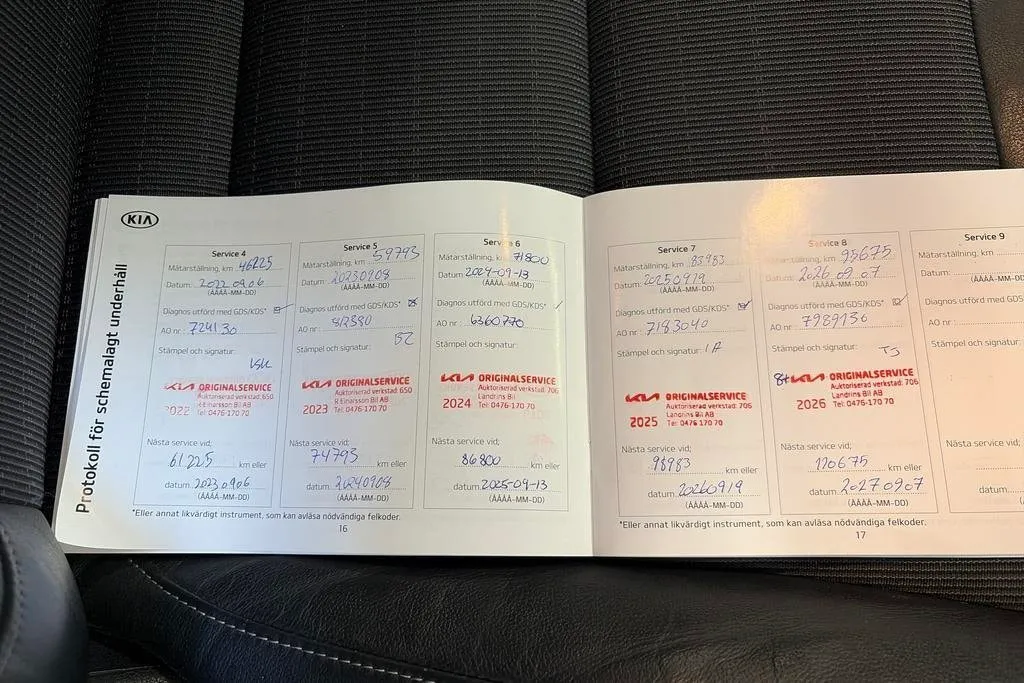 KIA
Protokoll för schemalagt underhåll
Service 4
Mätarställning, km 46225
Datum: 2022 09 06
(ÅÅÅÅ-MM-DD)
Diagnos utförd med GDS/KDS*
AO nr: 724130
Stämpel och signatur:
KIA ORIGINALSERVICE
Auktoriserad verkstad: 650
R Einarsson Bil AB
2022 Tel: 0476-170 70
Nästa service vid;
61225 km eller
datum: 2023 09 06
(ÅÅÅÅ-MM-DD)
Service 5
Mätarställning, km 59793
Datum: 20230908
(ÅÅÅÅ-MM-DD)
Diagnos utförd med GDS/KDS*
AO nr:
Stämpel och signatur:
KIA ORIGINALSERVICE
Auktoriserad verkstad: 650
R Einarsson Bil AB
2023 Tel: 0476-170 70
Nästa service vid;
74793 km eller
datum: 20240908
(ÅÅÅÅ-MM-DD)
Service 6
Mätarställning, km 71800
Datum: 2024-09-13
(ÅÅÅÅ-MM-DD)
Diagnos utförd med GDS/KDS*
AO nr: 6360770
Stämpel och signatur:
KIA ORIGINALSERVICE
Auktoriserad verkstad: 706
Landrins Bil AB
2024 Tel: 0476-170 70
Nästa service vid;
86800 km eller
datum: 2025-09-13
(ÅÅÅÅ-MM-DD)
*Eller annat likvärdigt instrument, som kan avläsa nödvändiga felkoder.
16
Service 7
Mätarställning, km 83983
Datum: 20250919
(ÅÅÅÅ-MM-DD)
Diagnos utförd med GDS/KDS*
AO nr: 7183040
Stämpel och signatur:
KIA ORIGINALSERVICE
Auktoriserad verkstad: 706
Landrins Bil AB
2025 Tel: 0476 170 70
Nästa service vid;
98983 km eller
datum: 20260919
(ÅÅÅÅ-MM-DD)
Service 8
Mätarställning, km 95675
Datum: 2026 09 07
(ÅÅÅÅ-MM-DD)
Diagnos utförd med GDS/KDS*
AO nr: 7989136
Stämpel och signatur:
TJ
KIA ORIGINALSERVICE
Auktoriserad verkstad: 706
Landrins Bil AB
2026 Tel: 0476-170 70
Nästa service vid;
110675 km eller
datum: 2027 09 07
(ÅÅÅÅ-MM-DD)
Service 9
Mätarställning, km
Datum:
(ÅÅÅÅ-MM-DD)
Diagnos utförd med GDS/KDS*
AO nr:
Stämpel och signatur:
Nästa service vid;
datum:
*Eller annat likvärdigt instrument, som kan avläsa nödvändiga felkoder.
17